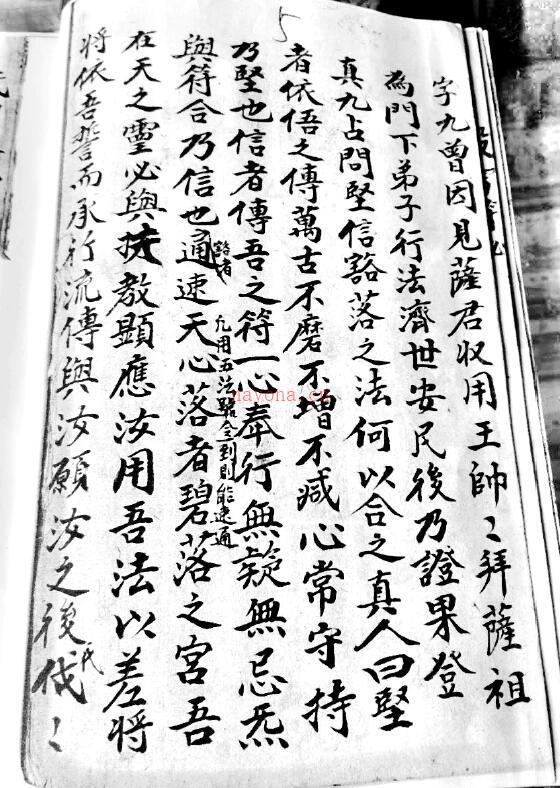 5
字九曾因見薩君収用王帥〻拜薩祖
為門下弟子行法濟世安民後乃證果登
真九占問堅信豁落之法何以合之真人曰堅
者依悟之傳萬古不磨不增不减心常守持
乃堅也信者傳吾之符一心奉行無疑無忌炁
與符合乃信也豁者通速天心落者碧落之宮吾
凢用五法號令到則能速通
在天之靈必與扶教顯應汝用吾法以差将
将依吾誓而承行流傳與汝願汝之後代〻
氏
nayona.cn